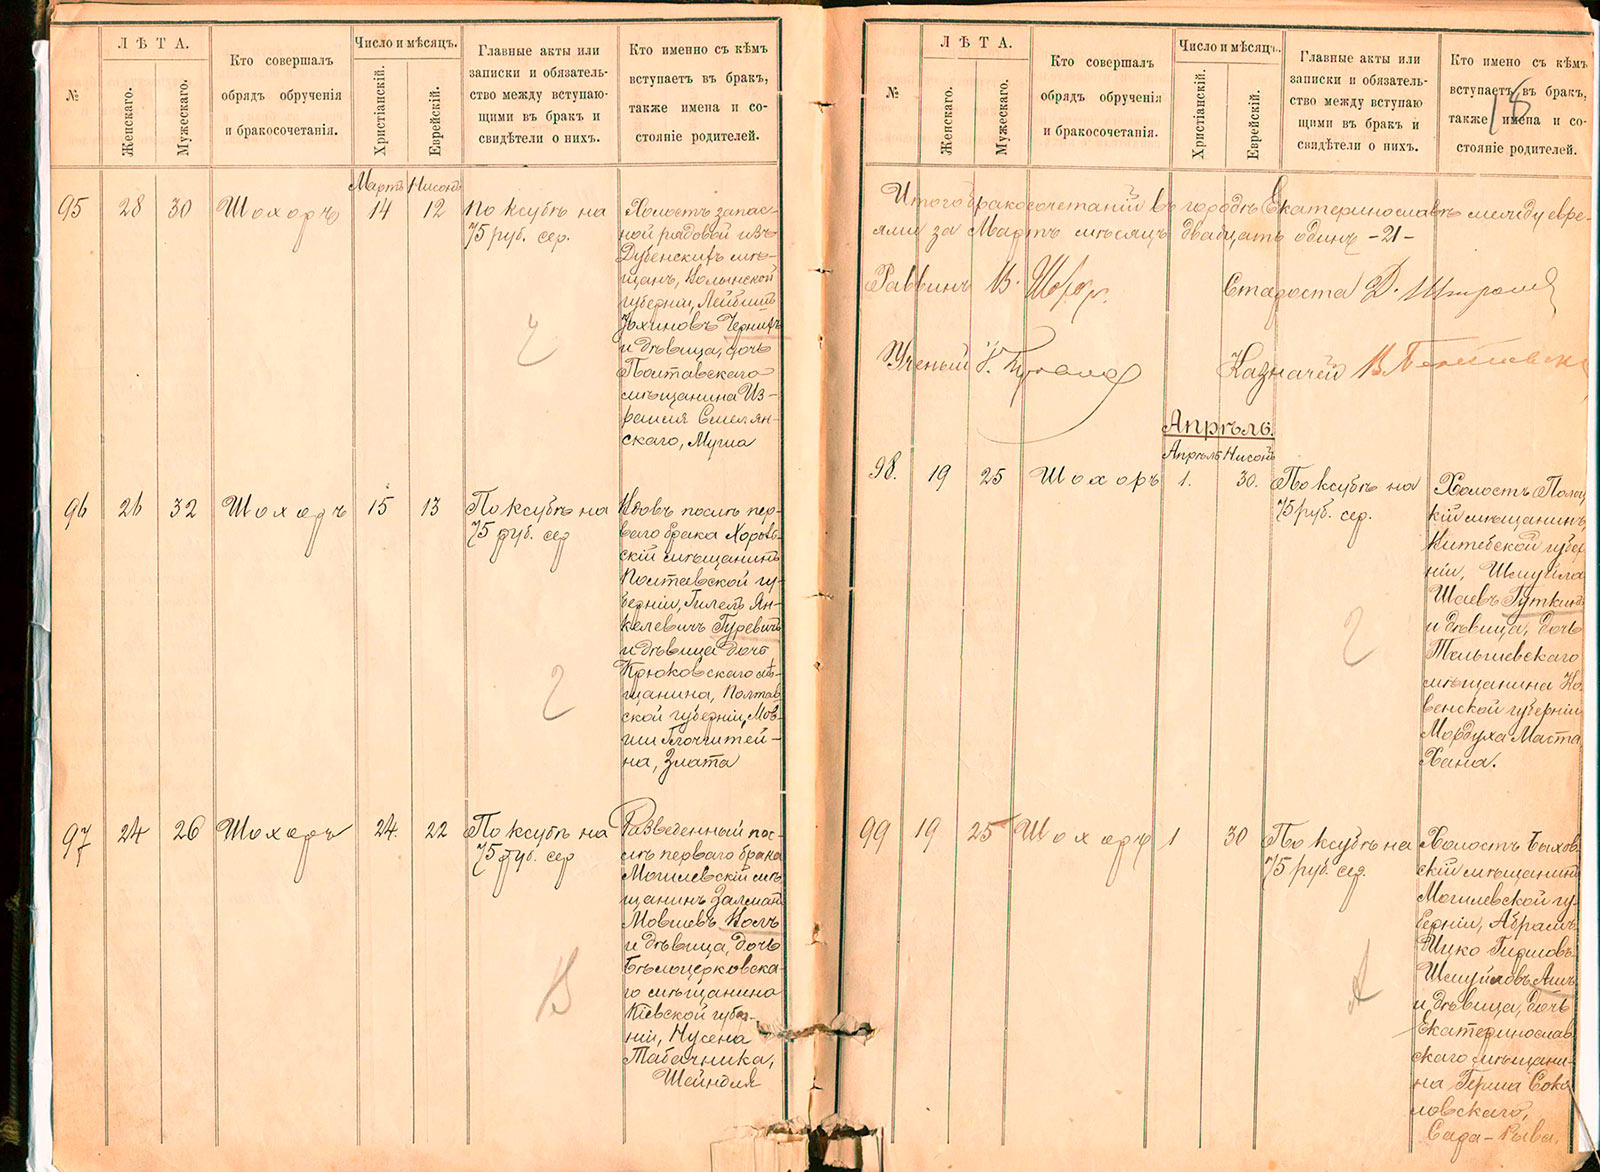 №
ЛѢТА.
Женскаго.
Мужескаго.
Кто совершалъ
обрядъ обрученія
и бракосочетанія.
Число и мѣсяцъ.
Христіанскій.
Еврейскій.
Главные акты или
записки и обязатель-
ство между вступаю-
щими въ бракъ и
свидѣтели о нихъ.
Кто именно съ кѣмъ
вступаетъ въ бракъ,
также имена и со-
стояніе родителей.
Мартъ Нисонъ
95 28 30 Шохоръ 14 12
По ксубѣ на
75 руб. сер.
Холостъ запас-
ной рядовой изъ
Дубенскихъ мѣ-
щанъ, Волынской
губерніи, Лейбишъ
и дѣвица, дочь
Полтавскаго
мѣщанина Из-
раиля Смелян-
скаго, Муша
96 26 32 Шохоръ 15 13
По ксубѣ на
75 руб. сер
Вдовъ послѣ пер-
ваго брака Хороль-
скій мѣщанинъ
Полтавской гу-
берніи, Гилель Ян-
келевичъ Гуревичъ
и дѣвица дочь
Крюковскаго мѣ-
щанина, Полтав-
ской губерніи, Мов-
ши
на, Злата
97 24 26 Шохоръ 24. 22
По ксубѣ на
75 руб. сер
Разведенный пос-
лѣ перваго брака
Могилевскій мѣ-
щанинъ Залманъ
Мовшевъ
и дѣвица, дочь
Бѣлоцерковска-
го мѣщанина
Кіевской губер-
ніи, Нусена
Табачника,
Шейндля
№
ЛѢТА.
Женскаго.
Мужескаго.
Кто совершалъ
обрядъ обрученія
и бракосочетанія.
Число и мѣсяцъ.
Христіанскій.
Еврейскій.
Главные акты или
записки и обязатель-
ство между вступаю
щими въ бракъ и
свидѣтели о нихъ.
Кто имено съ кѣмъ
вступаетъ въ бракъ,
также имена и со-
стояніе родителей.
18
Итого бракосочетаній въ городѣ Екатеринославѣ между евре-
ями за Мартъ мѣсяцъ двадцать одинъ -21-
Раввинъ В. Шохоръ. Староста Д.
Ученый Казначей В.
Апрѣль.
Апрѣль Нисонъ
98. 19 25 Шохоръ 1. 30.
По ксубѣ на
75 руб. сер.
Холостъ Полоц
кій мѣщанинъ
Витебской губер
ніи, Шмуйла
Шаевъ Гуткинъ
и дѣвица, дочь
Тельшевскаго
мѣщанина Ко-
венской губерніи
Мордуха Маста,
Хана.
99 19 25 Шохоръ 1 30
По ксубѣ на
75 руб. сер.
Холостъ Быхов
скій мѣщанинъ
Могилевской гу-
берніи, Абрамъ
Ицко Гиршовъ
и дѣвица, дочь
Екатеринослав
скаго мѣщани-
на Герша Соко
ловскаго,
Сара-Рыва.